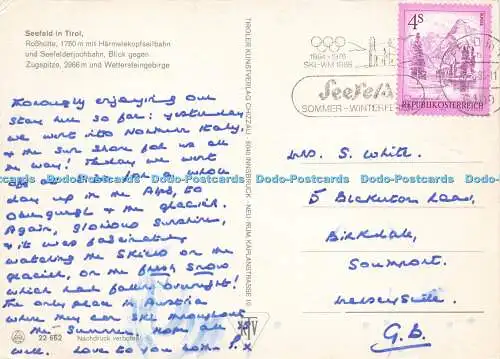 Seefeld in Tirol,
Roßhütte, 1760 m mit Härmelekopfseilbahn
und Seefelderjochbahn, Blick gegen
Zugspitze, 2966 m und Wettersteingebirge
Thoroughly enjoying our
stay here so far: yesterday
we went into Northern Italy,
& the sun shone for us all
the way! Today we went
off at 8.15 for a whole
day up in the Alps, to
Obergurgl & the glacier.
Again, glorious sunshine,
& it was fascinating
watching the skiers on the
glacier, on the fresh snow
which had fallen overnight!
The only place in Austria
where they can ski throughout
the summer. Hope all
well. Love to you both
22 652
Nachdruck verboten
TIROLER KUNSTVERLAG CHIZZALI · 6010 INNSBRUCK - NEU RUM, KAPLANSTRASSE 10
RTV
1964 - 1976
SKI-WM 1985
Seefeld
SOMMER - WINTER
4S
REPUBLIK ÖSTERREICH
Mrs. S. White.
5 Bickerton Road,
Birkdale,
Southport,
Merseyside.
G.B.
Dodo-Postcards Dodo-Postcards Dodo-Postcards Dodo-Postcards Dodo-Postcards